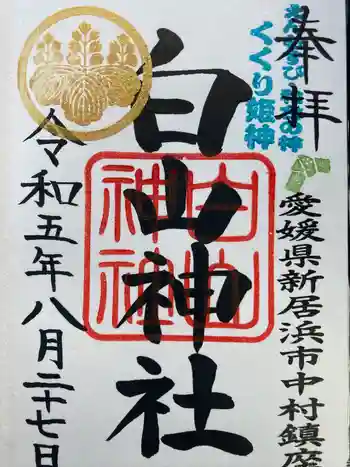 奉拝
くくり姫神
愛媛県新居浜市中村鎮座
白山神社
白山神社
令和五年八月二十七日